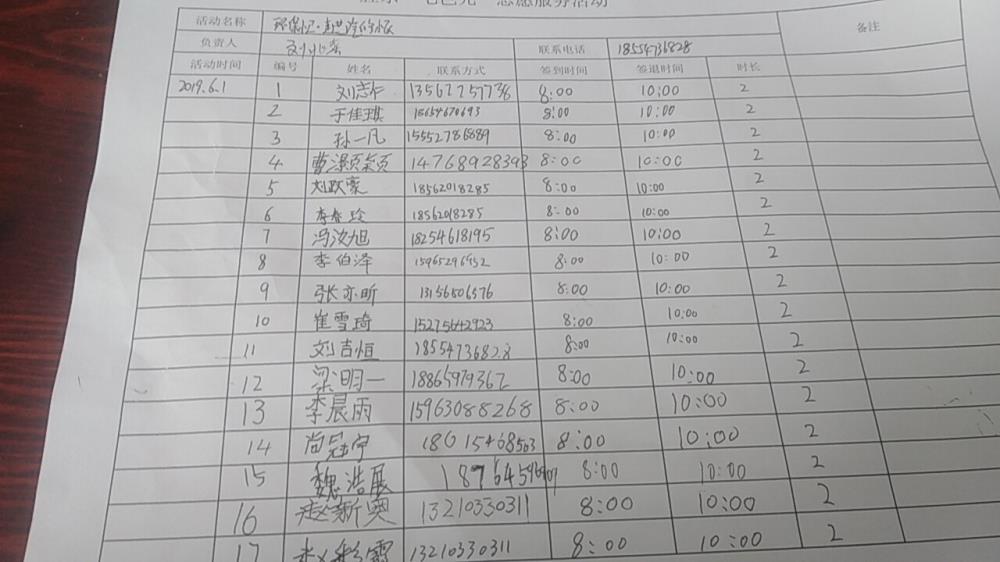 志愿服务活动
活动名称 环保 备注
负责人 联系电话 18554736828
活动时间 编号 姓名 联系方式 签到时间 签退时间 时长
2019.6.1 1 刘志仁 13562757738 8:00 10:00 2
2 于佳琪 18654670693 8:00 10:00 2
3 孙一凡 15552786889 8:00 10:00 2
4 曹 14768928393 8:00 10:00 2
5 刘政豪 18562018285 8:00 10:00 2
6 李春玲 18562018285 8:00 10:00 2
7 冯汝旭 18254618195 8:00 10:00 2
8 李伯泽 15965296952 8:00 10:00 2
9 张亦昕 13156506576 8:00 10:00 2
10 崔雪琦 15275642923 8:00 10:00 2
11 刘吉恒 18554736828 8:00 10:00 2
12 梁明一 18865979367 8:00 10:00 2
13 李晨雨 15963088268 8:00 10:00 2
14 尚冠宇 18615468503 8:00 10:00 2
15 魏浩展 8:00 10:00 2
16 赵新奥 13210330311 8:00 10:00 2
17 13210330311 8:00 10:00 2